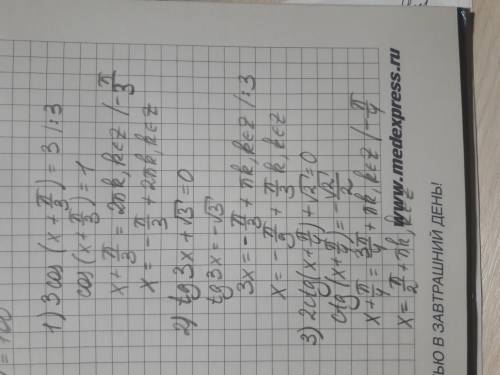 1) 3cos(x+π/3)=3 |:3
cos(x+π/3)=1
x+π/3=2πk, k∈z |-π/3
x=-π/3+2πk, k∈z
2) tg3x+√3=0
tg3x=-√3
3x=-π/3+πk, k∈z |:3
x=-π/9+π/3k, k∈z
3) 2ctg(x+π/4)+√2=0
ctg(x+π/4)=-√2/2
x+π/4=3π/4+πk, k∈z |-π/4
x=π/2+πk, k∈z
www.medexpress.ru
ЬЮ В ЗАВТРАШНИЙ ДЕНЬ!
=100